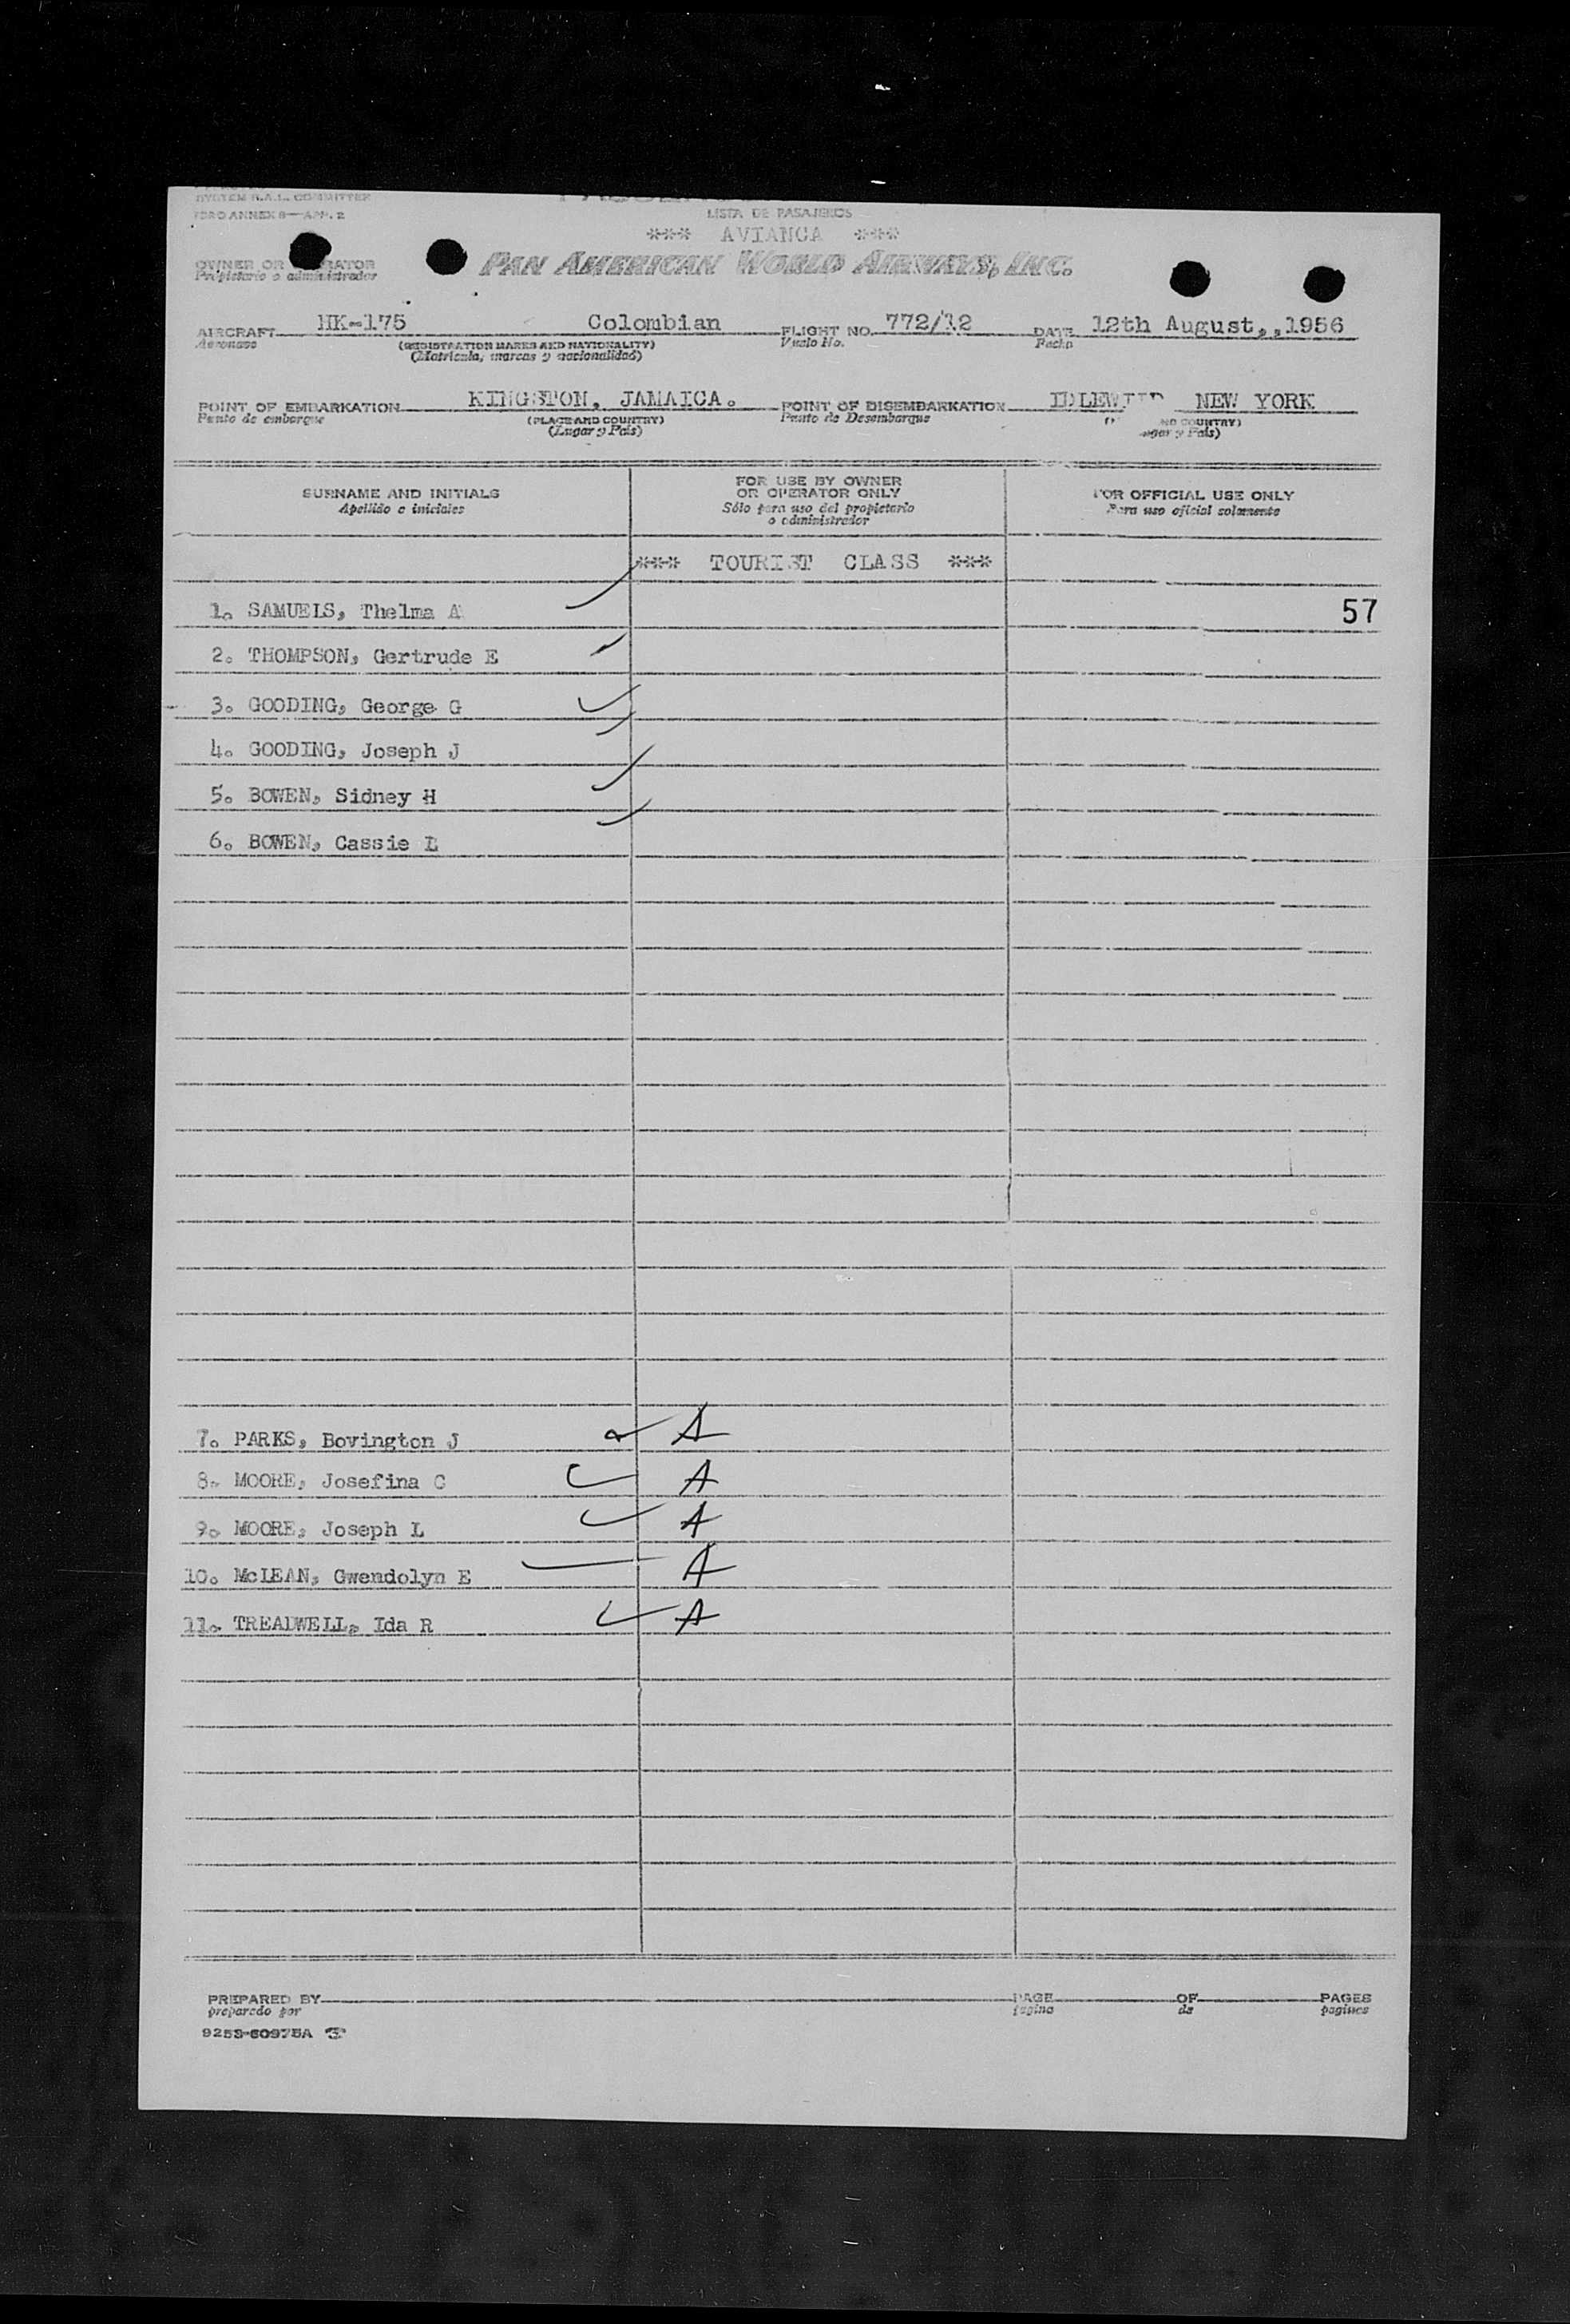 SYSTEM R.A.L. COMMITTEE
ANNEX 8—APP. 2
LISTA DE PASAJEROS
*** AVIANCA ***
OWNER OR OPERATOR PAN AMERICAN WORLD AIRWAYS, INC.
Propietario o administrador
AIRCRAFT HK-175 Colombian FLIGHT NO. 772/12 DATE 12th August,,1956
Aeronave (REGISTRATION MARKS AND NATIONALITY) Vuelo No. Fecha
(Matricula, marcas y nacionalidad)
POINT OF EMBARKATION KINGSTON, JAMAICA. POINT OF DISEMBARKATION IDLEWILD NEW YORK
Punto de embarque (PLACE AND COUNTRY) Punto de Desembarque COUNTRY)
(Lugar y Pais) y Pais)
SURNAME AND INITIALS FOR USE BY OWNER OR OPERATOR ONLY FOR OFFICIAL USE ONLY
Apellido e iniciales Sólo para uso del propietario o administrador Para uso oficial solamente
*** TOURIST CLASS ***
1. SAMUELS, Thelma A 57
2. THOMPSON, Gertrude E
3. GOODING, George G
4. GOODING, Joseph J
5. BOWEN, Sidney H
6. BOWEN, Cassie L
7. PARKS, Bovington J A
8. MOORE, Josefina C A
9. MOORE, Joseph L A
10. McLEAN, Gwendolyn E A
11. TREADWELL, Ida R A
PREPARED BY PAGE OF PAGES
preparado por pagina de pagines
9253-60975A